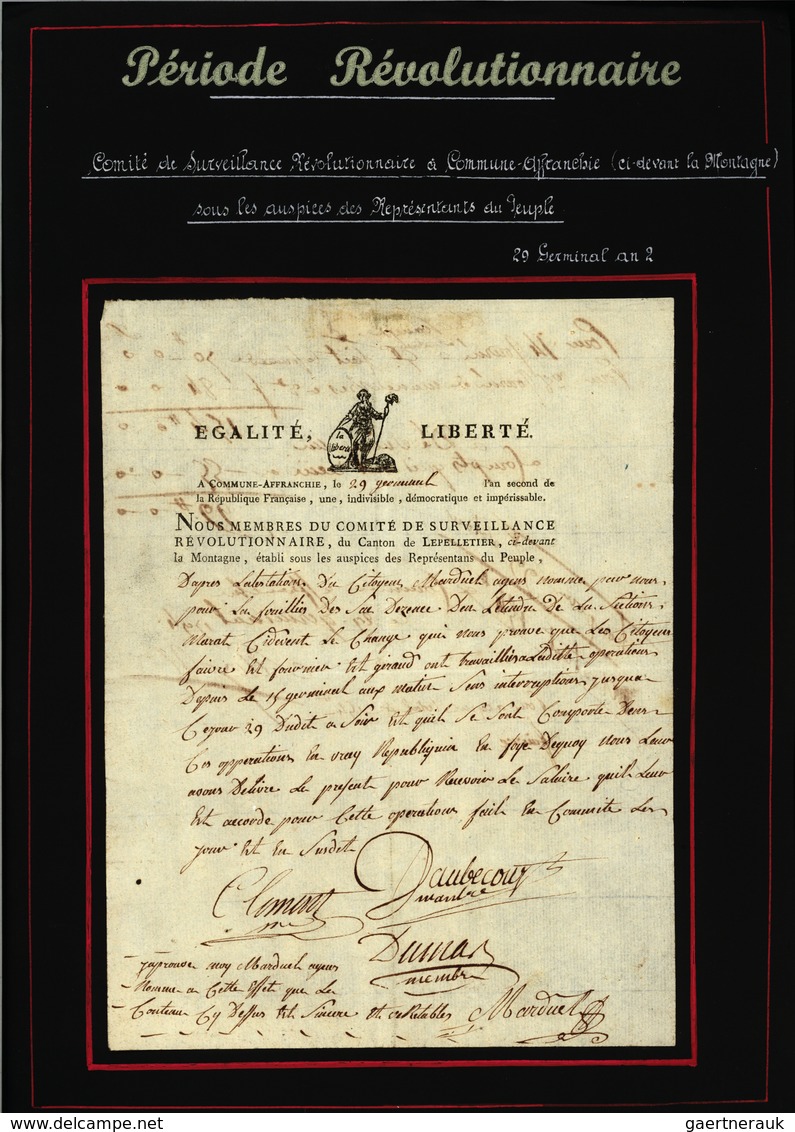 Période Révolutionnaire
Comité de Surveillance Révolutionnaire à Commune-Affranchie (ci-devant la Montagne)
sous les auspices des Représentants du Peuple
29 Germinal an 2
EGALITÉ, LIBERTÉ.
la liberté
A COMMUNE-AFFRANCHIE, le 29 germinal l'an second de
la République Française, une, indivisible, démocratique et impérissable.
NOUS MEMBRES DU COMITÉ DE SURVEILLANCE
RÉVOLUTIONNAIRE, du Canton de LEPELLETIER, ci-devant
la Montagne, établi sous les auspices des Représentans du Peuple,
Dapres Latestation Du Citoyen Marduel agens nomme par nous
pour La fouillis Des Dezence Den Letendue De La Sections
Marat Cidevent Le Change qui nous prouve que Les Citoyen
faivre Est fournier Est giraud ont travaillis a Laditte operations
Depuis Le 15 germinal aux matin Sens interruptions jusqua
Cejour 29 Dudit a Soir Est quil Se Sont Comporte Dens
Ces opperations En vray Republiquin En foye Dequoy nous Leur
avons Delivre Le present pour Recevoir Le Salaire quil Leur
Est accorde pour Cette operations fait En Commite Les
jour Est En Susdit
Daubecourt
Clement membre
Dumas
membre
japrouve moy Marduel agens
Nomme a Cette Effet que Le
Conteau Cy Dessus Est Sincere Marduel
gaertnerauk